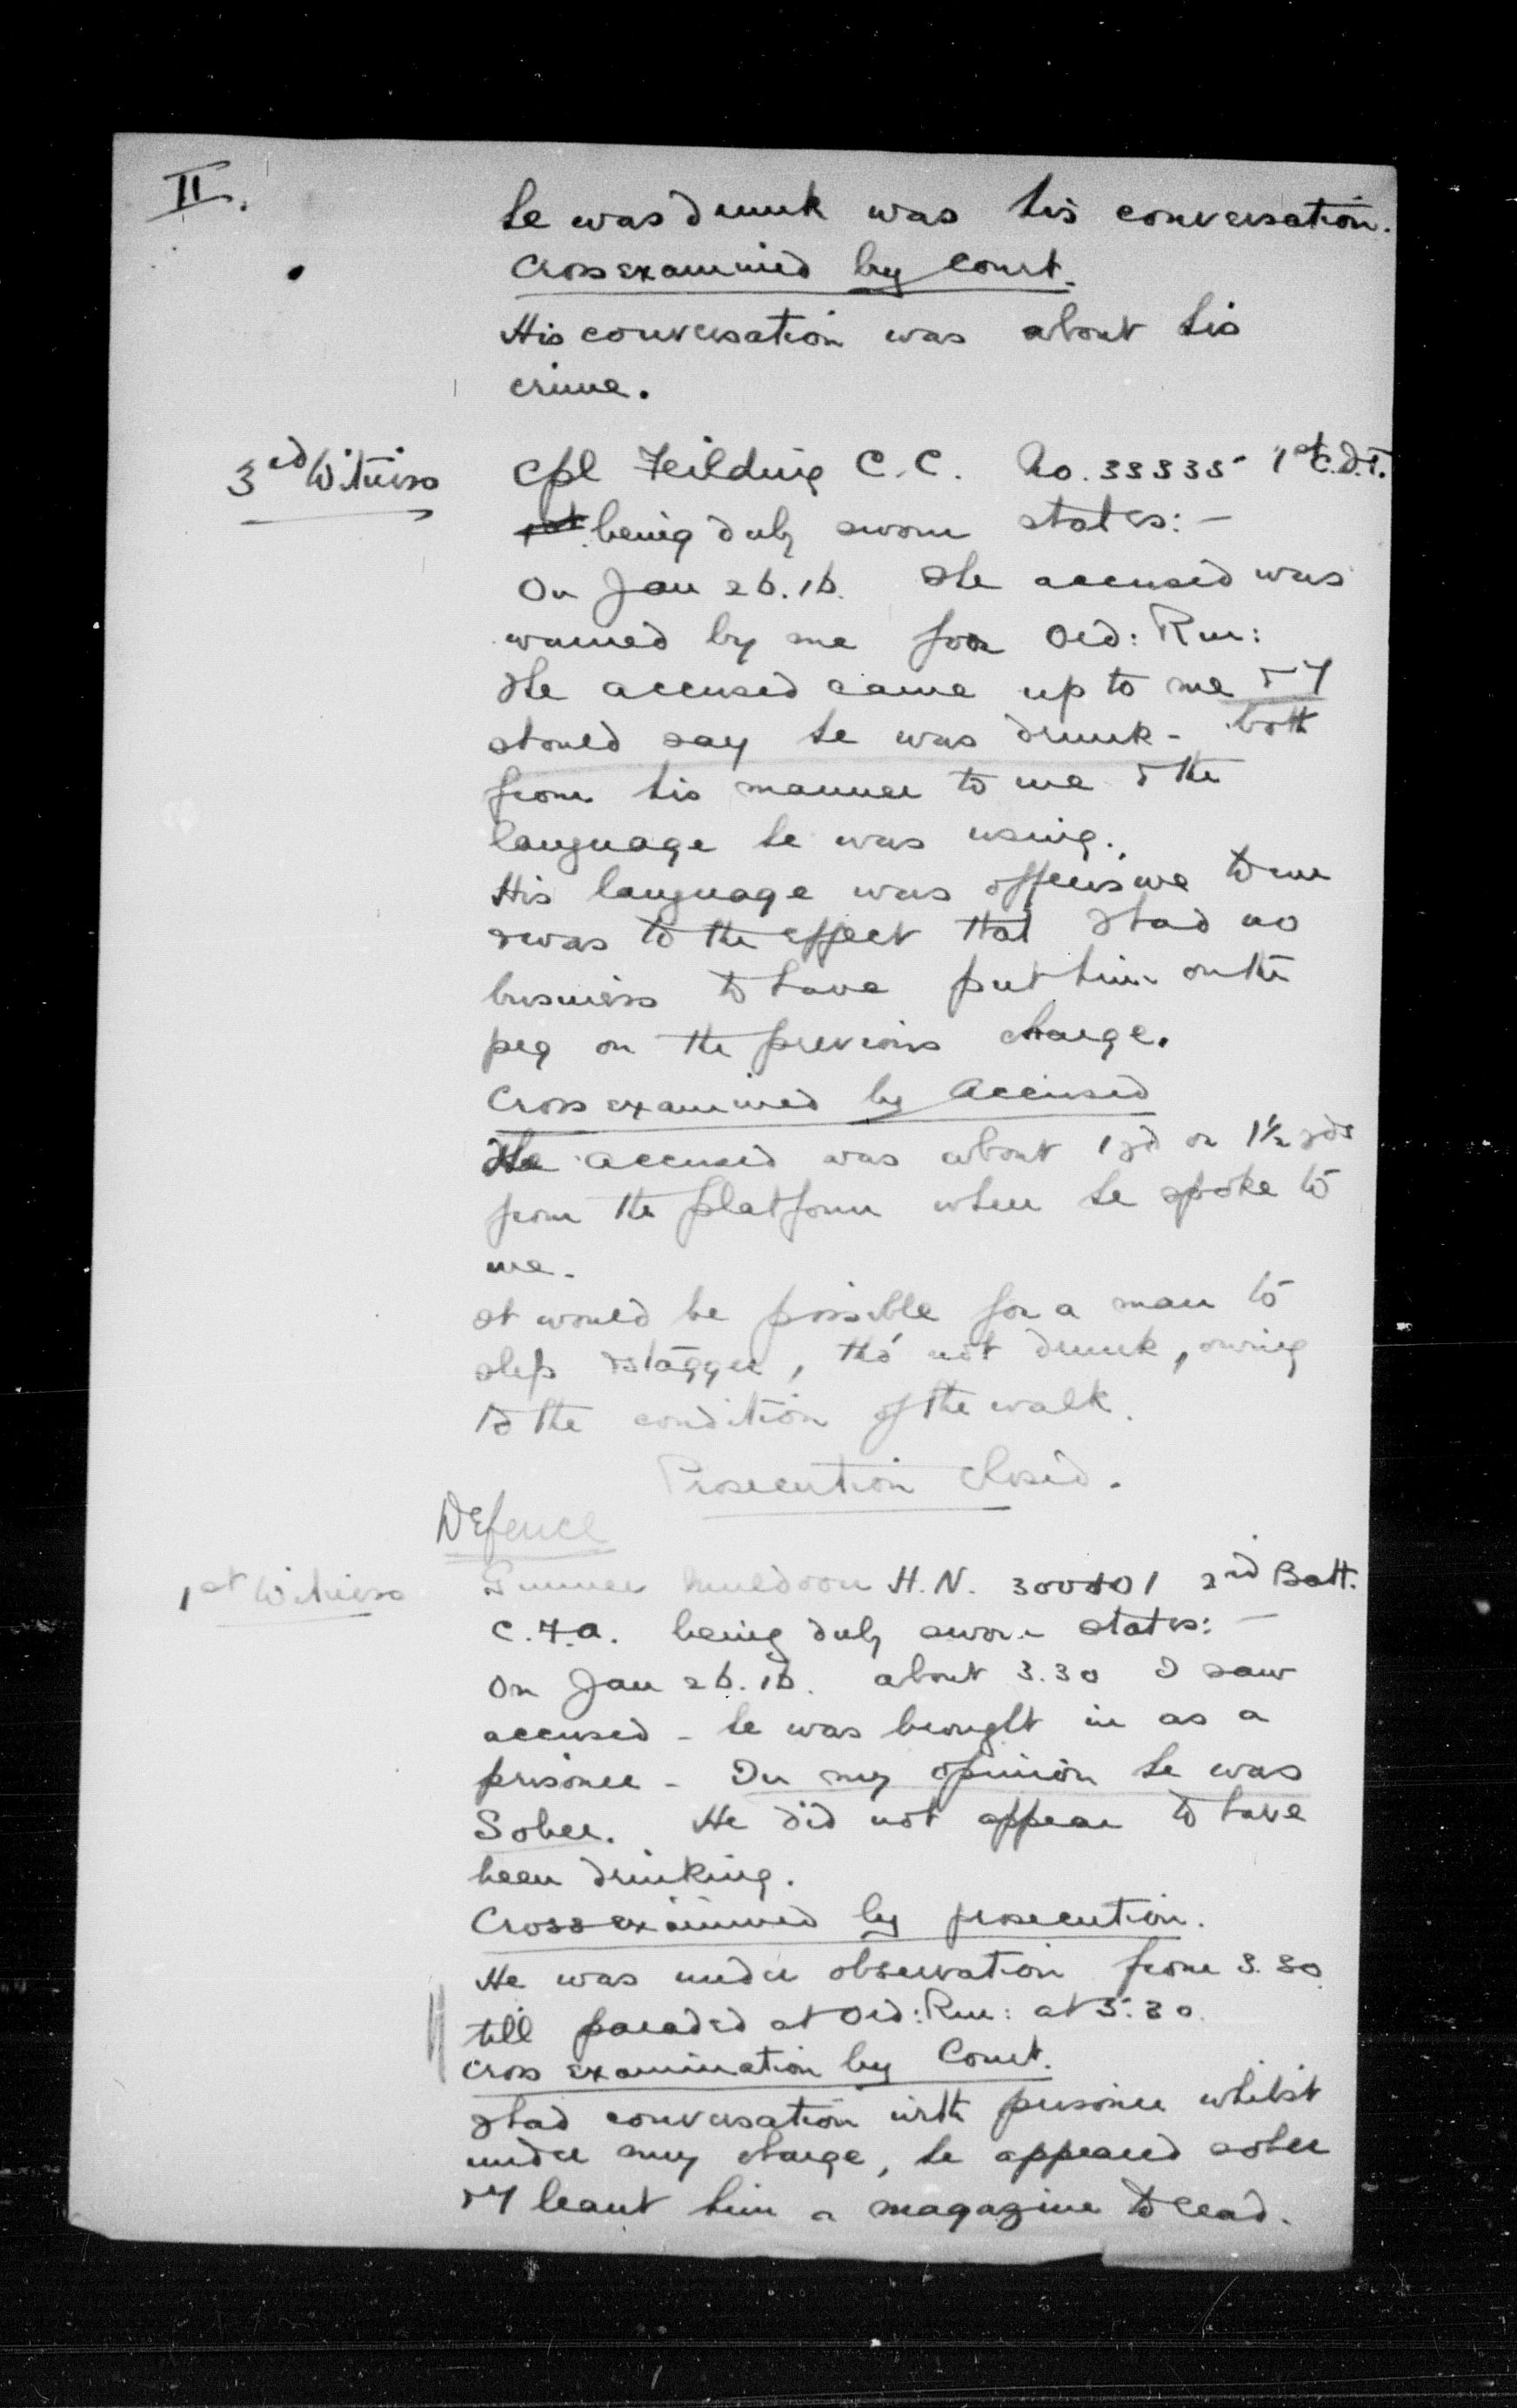 II.
he was drunk was his conversation.
Cross examined by Court.
His conversation was about his
crime.
3rd Witness
Cpl Feilding C.C. No. 33335 1st C.D.T.
being duly sworn states:-
On Jan 26.16. The accused was
warned by me for Ord: Rm:
The accused came up to me & I
should say he was drunk - both
from his manner to me & the
language he was using.
His language was offensive to me
& was to the effect that I had no
business to have put him on the
peg on the previous charge.
Cross examined by Accused
The accused was about 1 yd or 1½ yds
from the platform when he spoke to
me.
It would be possible for a man to
slip & stagger, tho' not drunk, owing
to the condition of the walk.
Prosecution closed.
Defence
1st Witness
Gunner Muldoon H.N. 300801 2nd Batt.
C.F.A. being duly sworn states:-
On Jan 26.16. about 3.30 I saw
accused - he was brought in as a
prisoner - In my opinion he was
Sober. He did not appear to have
been drinking.
Cross examined by prosecution.
He was under observation from 3.30
till paraded at Ord: Rm: at 5.30.
Cross examination by Court.
I had conversation with prisoner whilst
under my charge, he appeared sober
& I leant him a magazine to read.